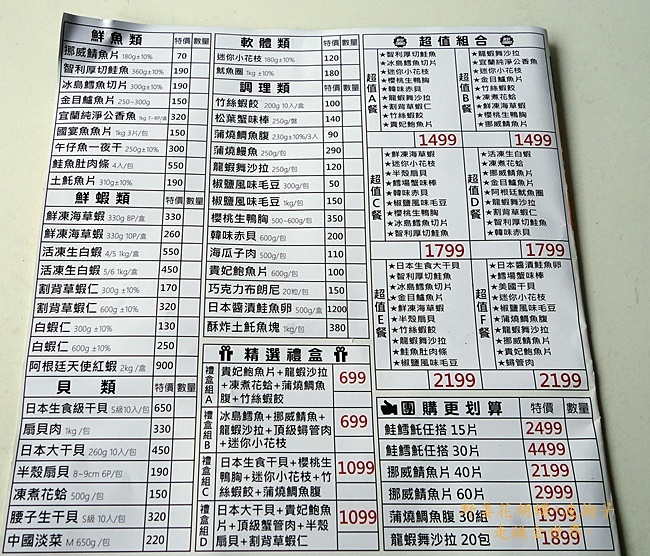 鮮魚類 特價 數量
挪威鯖魚片 180g±10% 70
智利厚切鮭魚 360g±10% 190
冰島鱈魚切片 300g±10% 190
金目鱸魚片 250~300g 150
宜蘭純淨公香魚 1kg 7~8P/盒 320
國宴魚魚片 1kg 3片/包 150
午仔魚一夜干 250g±10% 300
鮭魚肚肉條 4入/包 550
土魠魚片 310g±10% 190
鮮蝦類 特價 數量
鮮凍海草蝦 330g 8P/盒 330
鮮凍海草蝦 330g 10P/盒 260
活凍生白蝦 4/5 1kg/盒 550
活凍生白蝦 5/6 1kg/盒 450
割背草蝦仁 300g ±10% 170
割背草蝦仁 600g ±10% 320
白蝦仁 300g ±10% 130
白蝦仁 600g ±10% 250
阿根廷天使紅蝦 2kg /盒 900
貝類 特價 數量
日本生食級干貝 S級10入/包 650
扇貝肉 1kg /包 330
日本大干貝 260g 10入/包 450
半殼扇貝 8~9cm 6P/包 190
凍煮花蛤 500g /包 150
腰子生干貝 S級 10入/包 320
中國淡菜 M 650g /包 220
軟體類 特價 數量
迷你小花枝 180g±10% 120
魷魚圈 1kg ±10% 180
調理類 特價 數量
竹絲蝦餃 200g 10入/盒 100
松葉蟹味棒 250g/盤 140
蒲燒鯛魚腹 230g±10%/3入 90
蒲燒鰻魚 250g/包 290
龍蝦舞沙拉 250g/包 120
椒鹽風味毛豆 300g/包 50
椒鹽風味毛豆 1kg/包 150
櫻桃生鴨胸 500~600g/包 350
韓味赤貝 600g/包 200
海瓜子肉 500g/包 110
貴妃鮑魚片 600g/包 100
巧克力布朗尼 20粒/包 150
日本醬漬鮭魚卵 500g/盒 1200
酥炸土魠魚塊 1kg/包 380
精選禮盒
禮盒組A 貴妃鮑魚片+龍蝦沙拉+凍煮花蛤+蒲燒鯛魚腹+竹絲蝦餃 699
禮盒組B 冰島鱈魚+挪威鯖魚+龍蝦沙拉+頂級蟳管肉+迷你小花枝 699
禮盒組C 日本生食干貝+櫻桃生鴨胸+迷你小花枝+竹絲蝦餃+蒲燒鯛魚腹 1099
禮盒組D 日本大干貝+貴妃鮑魚片+頂級蟹管肉+半殼扇貝+割背草蝦仁 1099
超值組合
超值A餐
★智利厚切鮭魚
★冰島鱈魚切片
★迷你小花枝
★櫻桃生鴨胸
★韓味赤貝
★龍蝦舞沙拉
★割背草蝦仁
★竹絲蝦餃
★貴妃鮑魚片
1499
超值B餐
★龍蝦舞沙拉
★宜蘭純淨公香魚
★迷你小花枝
★金目鱸魚片
★竹絲蝦餃
★凍煮花蛤
★鮮凍海草蝦
★櫻桃生鴨胸
★挪威鯖魚片
1499
超值C餐
★鮮凍海草蝦
★迷你小花枝
★半殼扇貝
★鱈場蟹味棒
★韓味赤貝
★椒鹽風味毛豆
★櫻桃生鴨胸
★冰島鱈魚切片
★智利厚切鮭魚
1799
超值D餐
★活凍生白蝦
★凍煮花蛤
★挪威鯖魚片
★金目鱸魚片
★阿根廷魷魚圈
★龍蝦舞沙拉
★割背草蝦仁
★智利厚切鮭魚
★韓味赤貝
1799
超值E餐
★日本生食大干貝
★智利厚切鮭魚
★冰島鱈魚切片
★金目鱸魚片
★櫻桃生鴨胸
★鮮凍海草蝦
★半殼扇貝
★竹絲蝦餃
★龍蝦舞沙拉
★鮭魚肚肉條
★椒鹽風味毛豆
2199
超值F餐
★日本醬漬鮭魚卵
★鱈場蟹味棒
★美國干貝
★迷你小花枝
★椒鹽風味毛豆
★蒲燒鯛魚腹
★龍蝦舞沙拉
★挪威鯖魚片
★貴妃鮑魚片
★蟳管肉
2199
團購更划算 特價 數量
鮭鱈魠任搭 15片 2499
鮭鱈魠任搭 30片 4499
挪威鯖魚片 40片 2199
挪威鯖魚片 60片 2999
蒲燒鯛魚腹 30組 1999
龍蝦舞沙拉 20包 1899